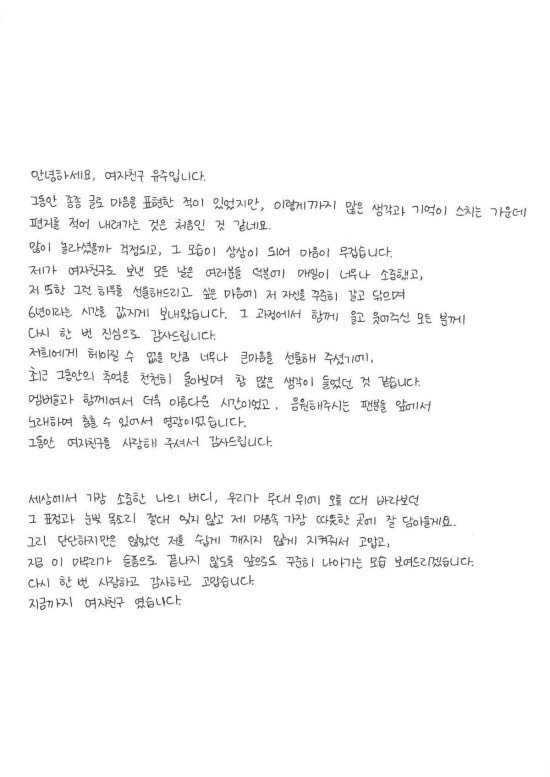 안녕하세요, 여자친구 유주입니다.
그동안 종종 글로 마음을 표현한 적이 있었지만, 이렇게까지 많은 생각과 기억이 스치는 가운데
편지를 적어 내려가는 것은 처음인 것 같네요.
많이 놀라셨을까 걱정되고, 그 모습이 상상이 되어 마음이 무겁습니다.
제가 여자친구로 보낸 모든 날은 여러분들 덕분에 매일이 너무나 소중했고,
저 또한 그런 하루를 선물해드리고 싶은 마음에 저 자신을 꾸준히 갈고 닦으며
6년이라는 시간을 값지게 보내왔습니다. 그 과정에서 함께 울고 웃어주신 모든 분께
다시 한 번 진심으로 감사드립니다.
저희에게 헤아릴 수 없을 만큼 너무나 큰마음을 선물해 주셨기에,
최근 그동안의 추억을 천천히 돌아보며 참 많은 생각이 들었던 것 같습니다.
멤버들과 함께여서 더욱 아름다운 시간이었고, 응원해주시는 팬분들 앞에서
노래하며 춤출 수 있어서 영광이었습니다.
그동안 여자친구를 사랑해 주셔서 감사드립니다.
세상에서 가장 소중한 나의 버디, 우리가 무대 위에 오를 때 바라보던
그 표정과 눈빛 목소리 절대 잊지 않고 제 마음속 가장 따뜻한 곳에 잘 담아둘게요.
그리 단단하지만은 않았던 저를 쉽게 깨지지 않게 지켜줘서 고맙고,
지금 이 마무리가 슬픔으로 끝나지 않도록 앞으로도 꾸준히 나아가는 모습 보여드리겠습니다.
다시 한 번 사랑하고 감사하고 고맙습니다.
지금까지 여자친구 였습니다.